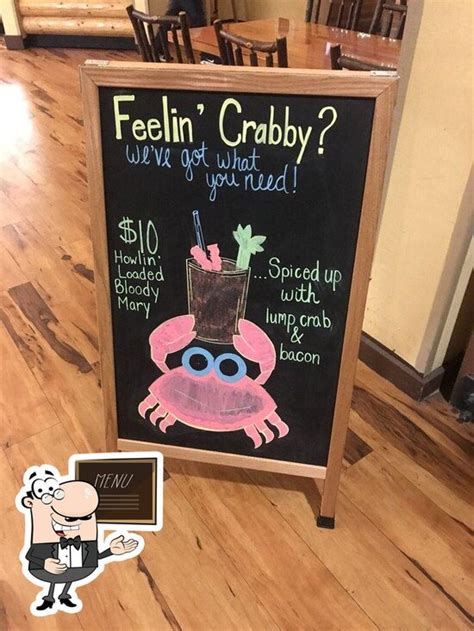 Feelin' Crabby?
We've got what
you need!
$10
Howlin'
Loaded
Bloody
Mary
...Spiced up
with
lump crab
&
bacon
MENU